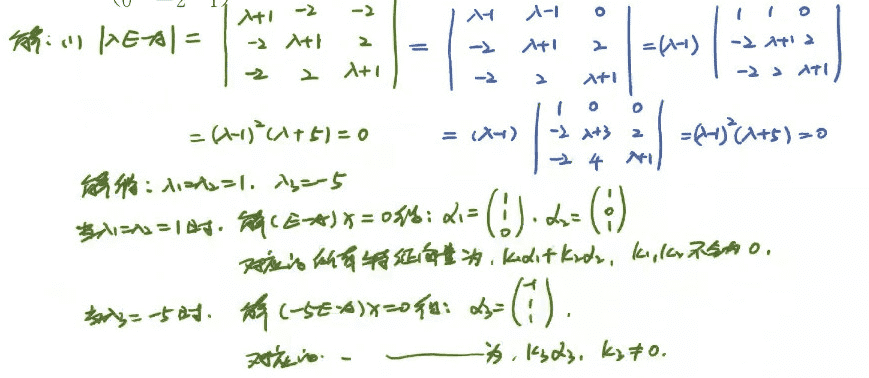 解：(1) |λE-A| = | λ+1 -2 -2 ; -2 λ+1 2 ; -2 2 λ+1 | = | λ-1 λ-1 0 ; -2 λ+1 2 ; -2 2 λ+1 | = (λ-1) | 1 1 0 ; -2 λ+1 2 ; -2 2 λ+1 |
= (λ-1)²(λ+5) = 0 = (λ-1) | 1 0 0 ; -2 λ+3 2 ; -2 4 λ+1 | = (λ-1)²(λ+5) = 0
解得：λ₁=λ₂=1. λ₃=-5
当λ₁=λ₂=1时. 解(E-A)x=0得：α₁=(1 1 0). α₂=(1 0 1)
对应的所有特征向量为, k₁α₁+k₂α₂, k₁,k₂不全为0.
当λ₃=-5时. 解(-5E-A)x=0得：α₃=(-1 1 1).
对应的. - ——— 为, k₃α₃, k₃≠0.